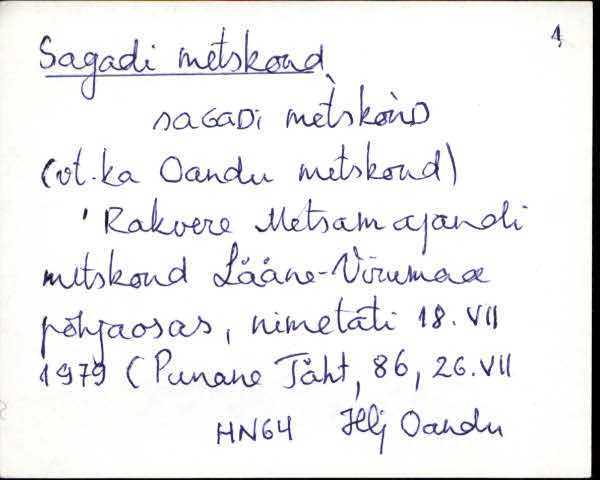 1
Sagadi metskond
sAGADi mètskònD
(vt.ka Oandu metskond)
'Rakvere Metsamajandi
metskond Lääne-Virumaa
põhjaosas, nimetati 18.VII
1979 (Punane Täht, 86, 26.VII
HN64 Hlj Oandu